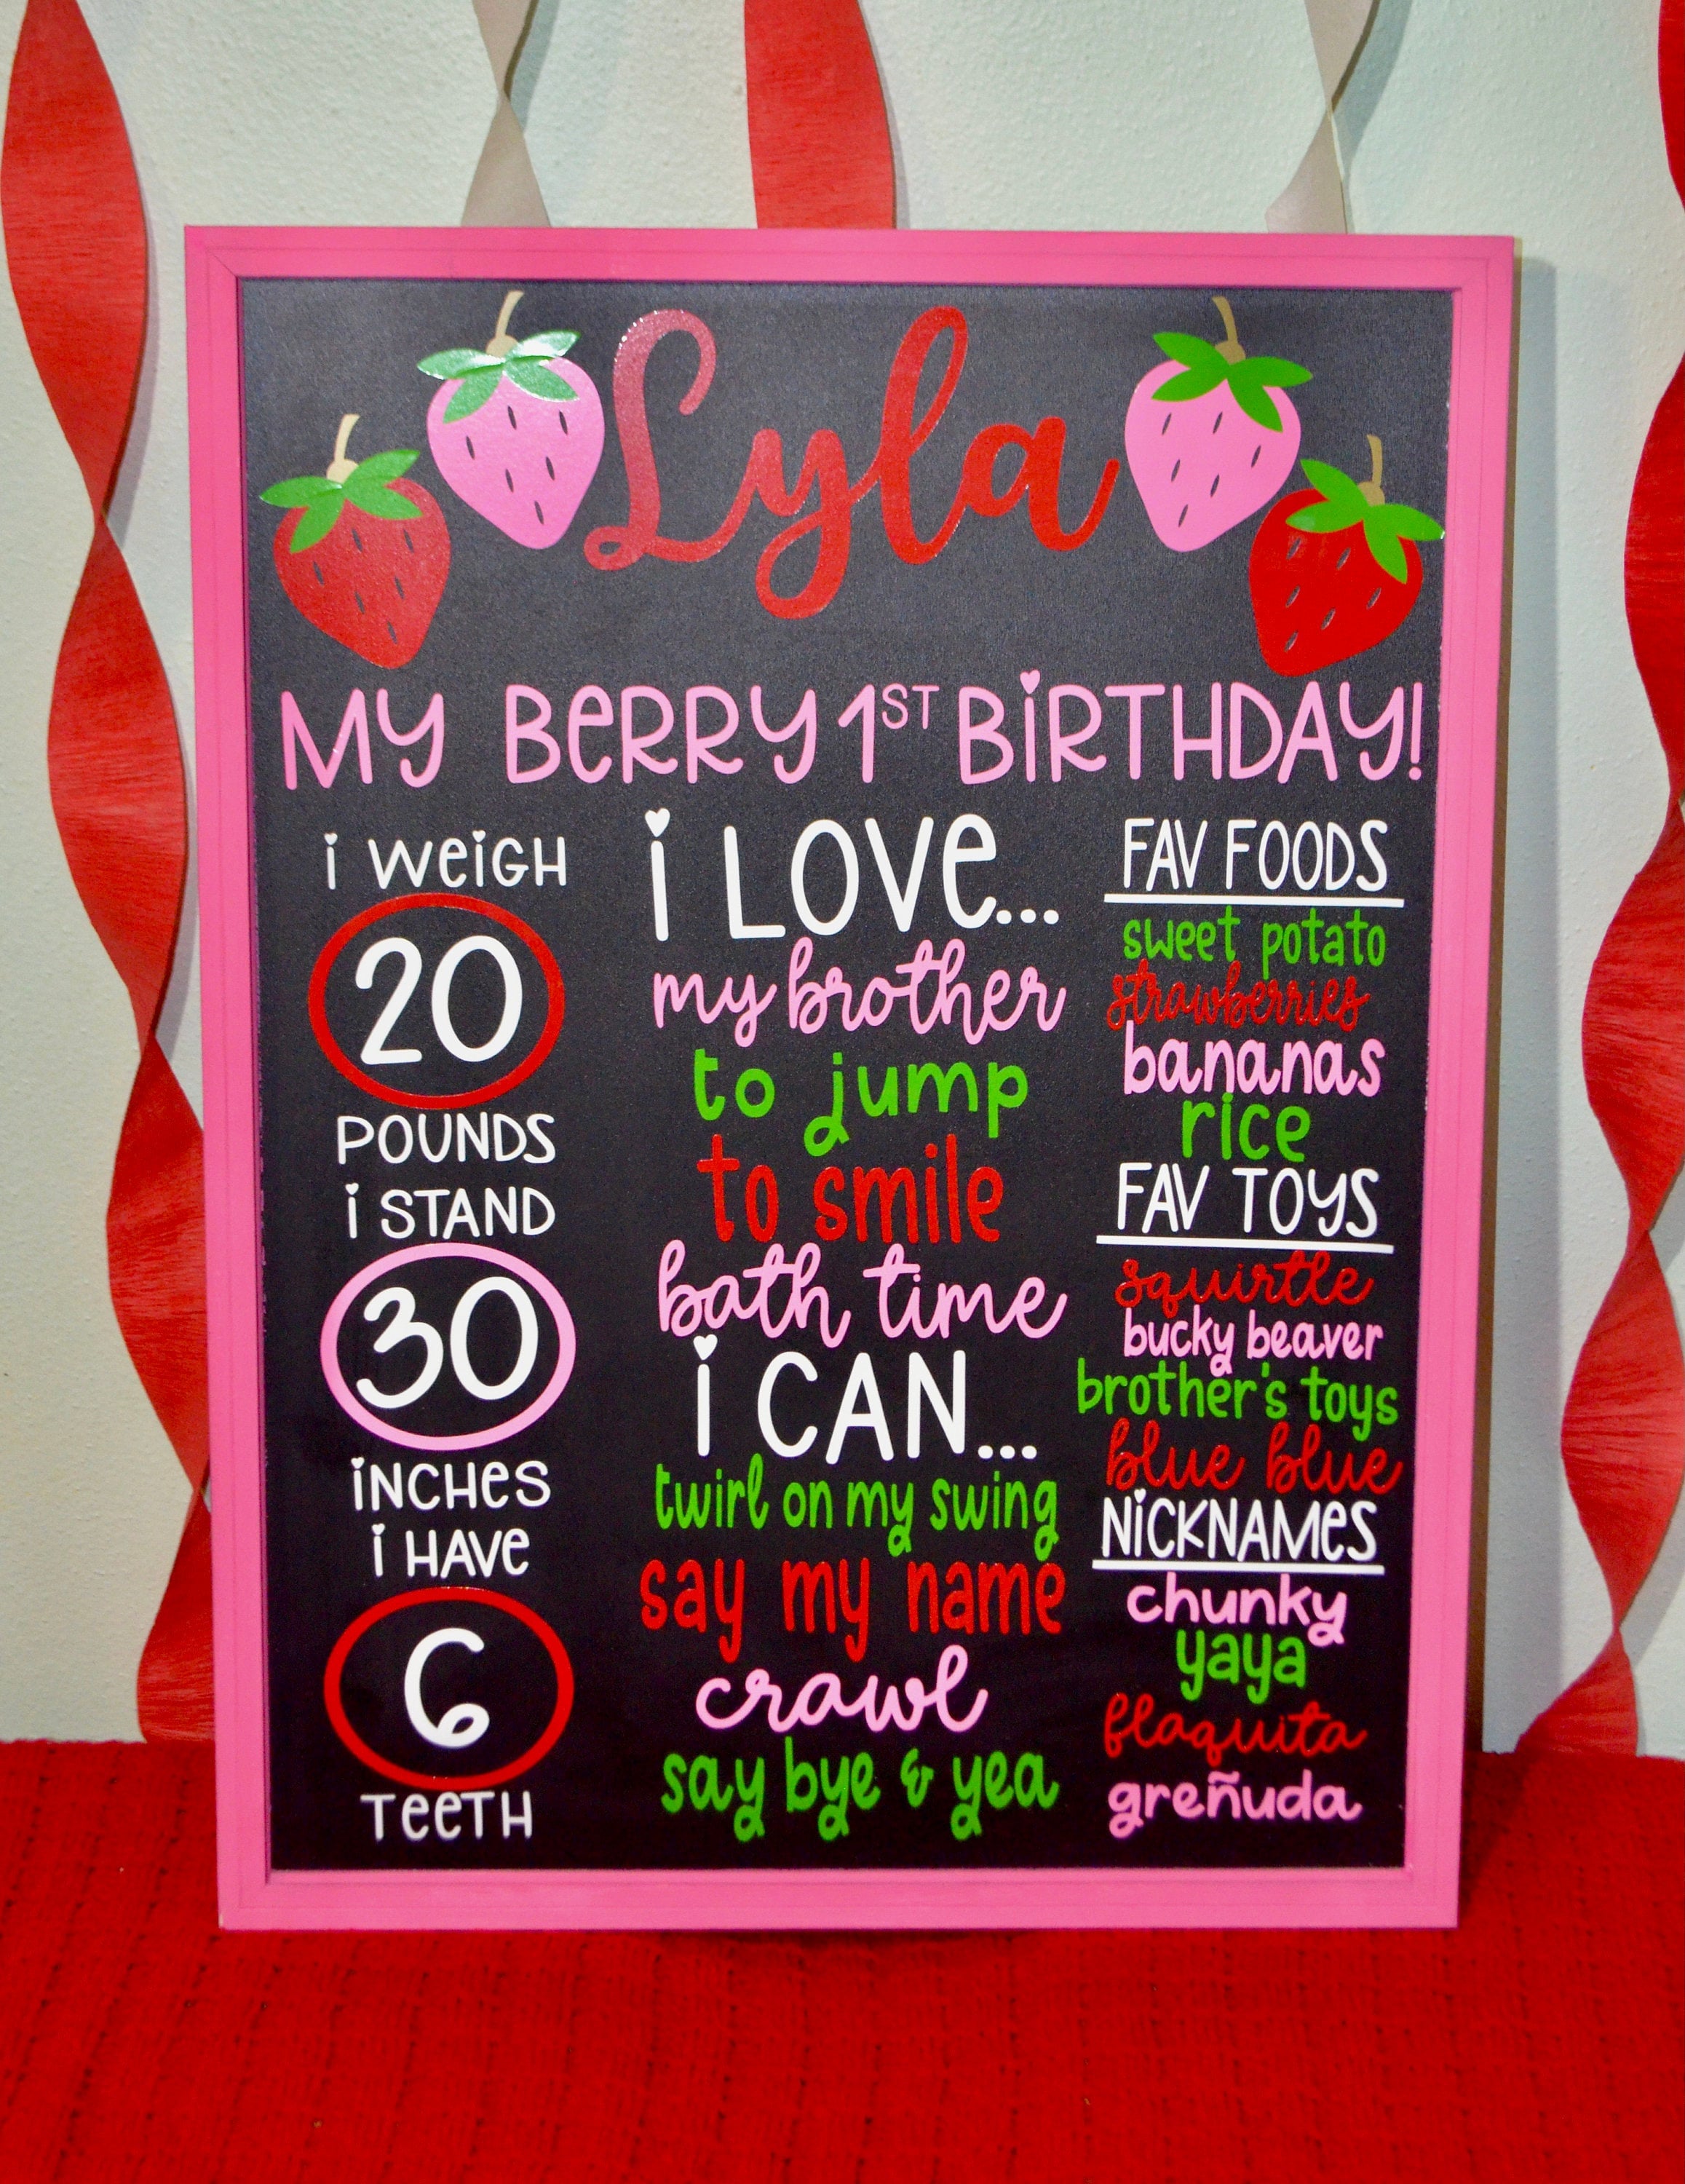 Lyla
MY BERRY 1ST BIRTHDAY!
i WEIGH
20
POUNDS
i STAND
30
INCHES
i HAVE
6
TEETH
i LOVE...
my brother
to jump
to smile
bath time
i CAN...
twirl on my swing
say my name
crawl
say bye & yea
FAV FOODS
sweet potato
strawberries
bananas
rice
FAV TOYS
squirtle
bucky beaver
brother's toys
blue blue
NICKNAMES
chunky
yaya
flaquita
greñuda